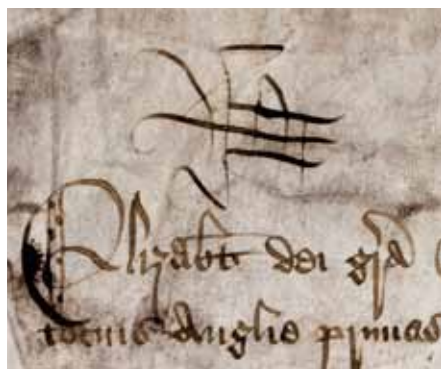 Elizabt dei gra
tocius Anglie primas